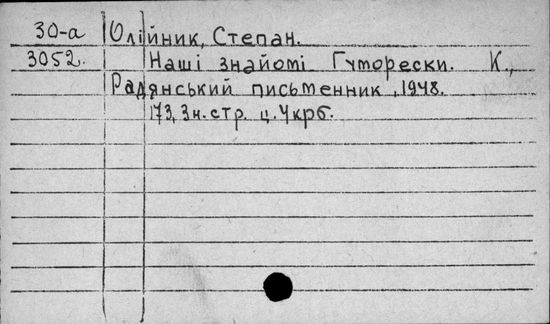 30-а Олійник, Степан.
3052. Наші знайомі Гуморески. К.,
Радянський письменник, 1948.
173, 3н. стр. ц. 4крб.